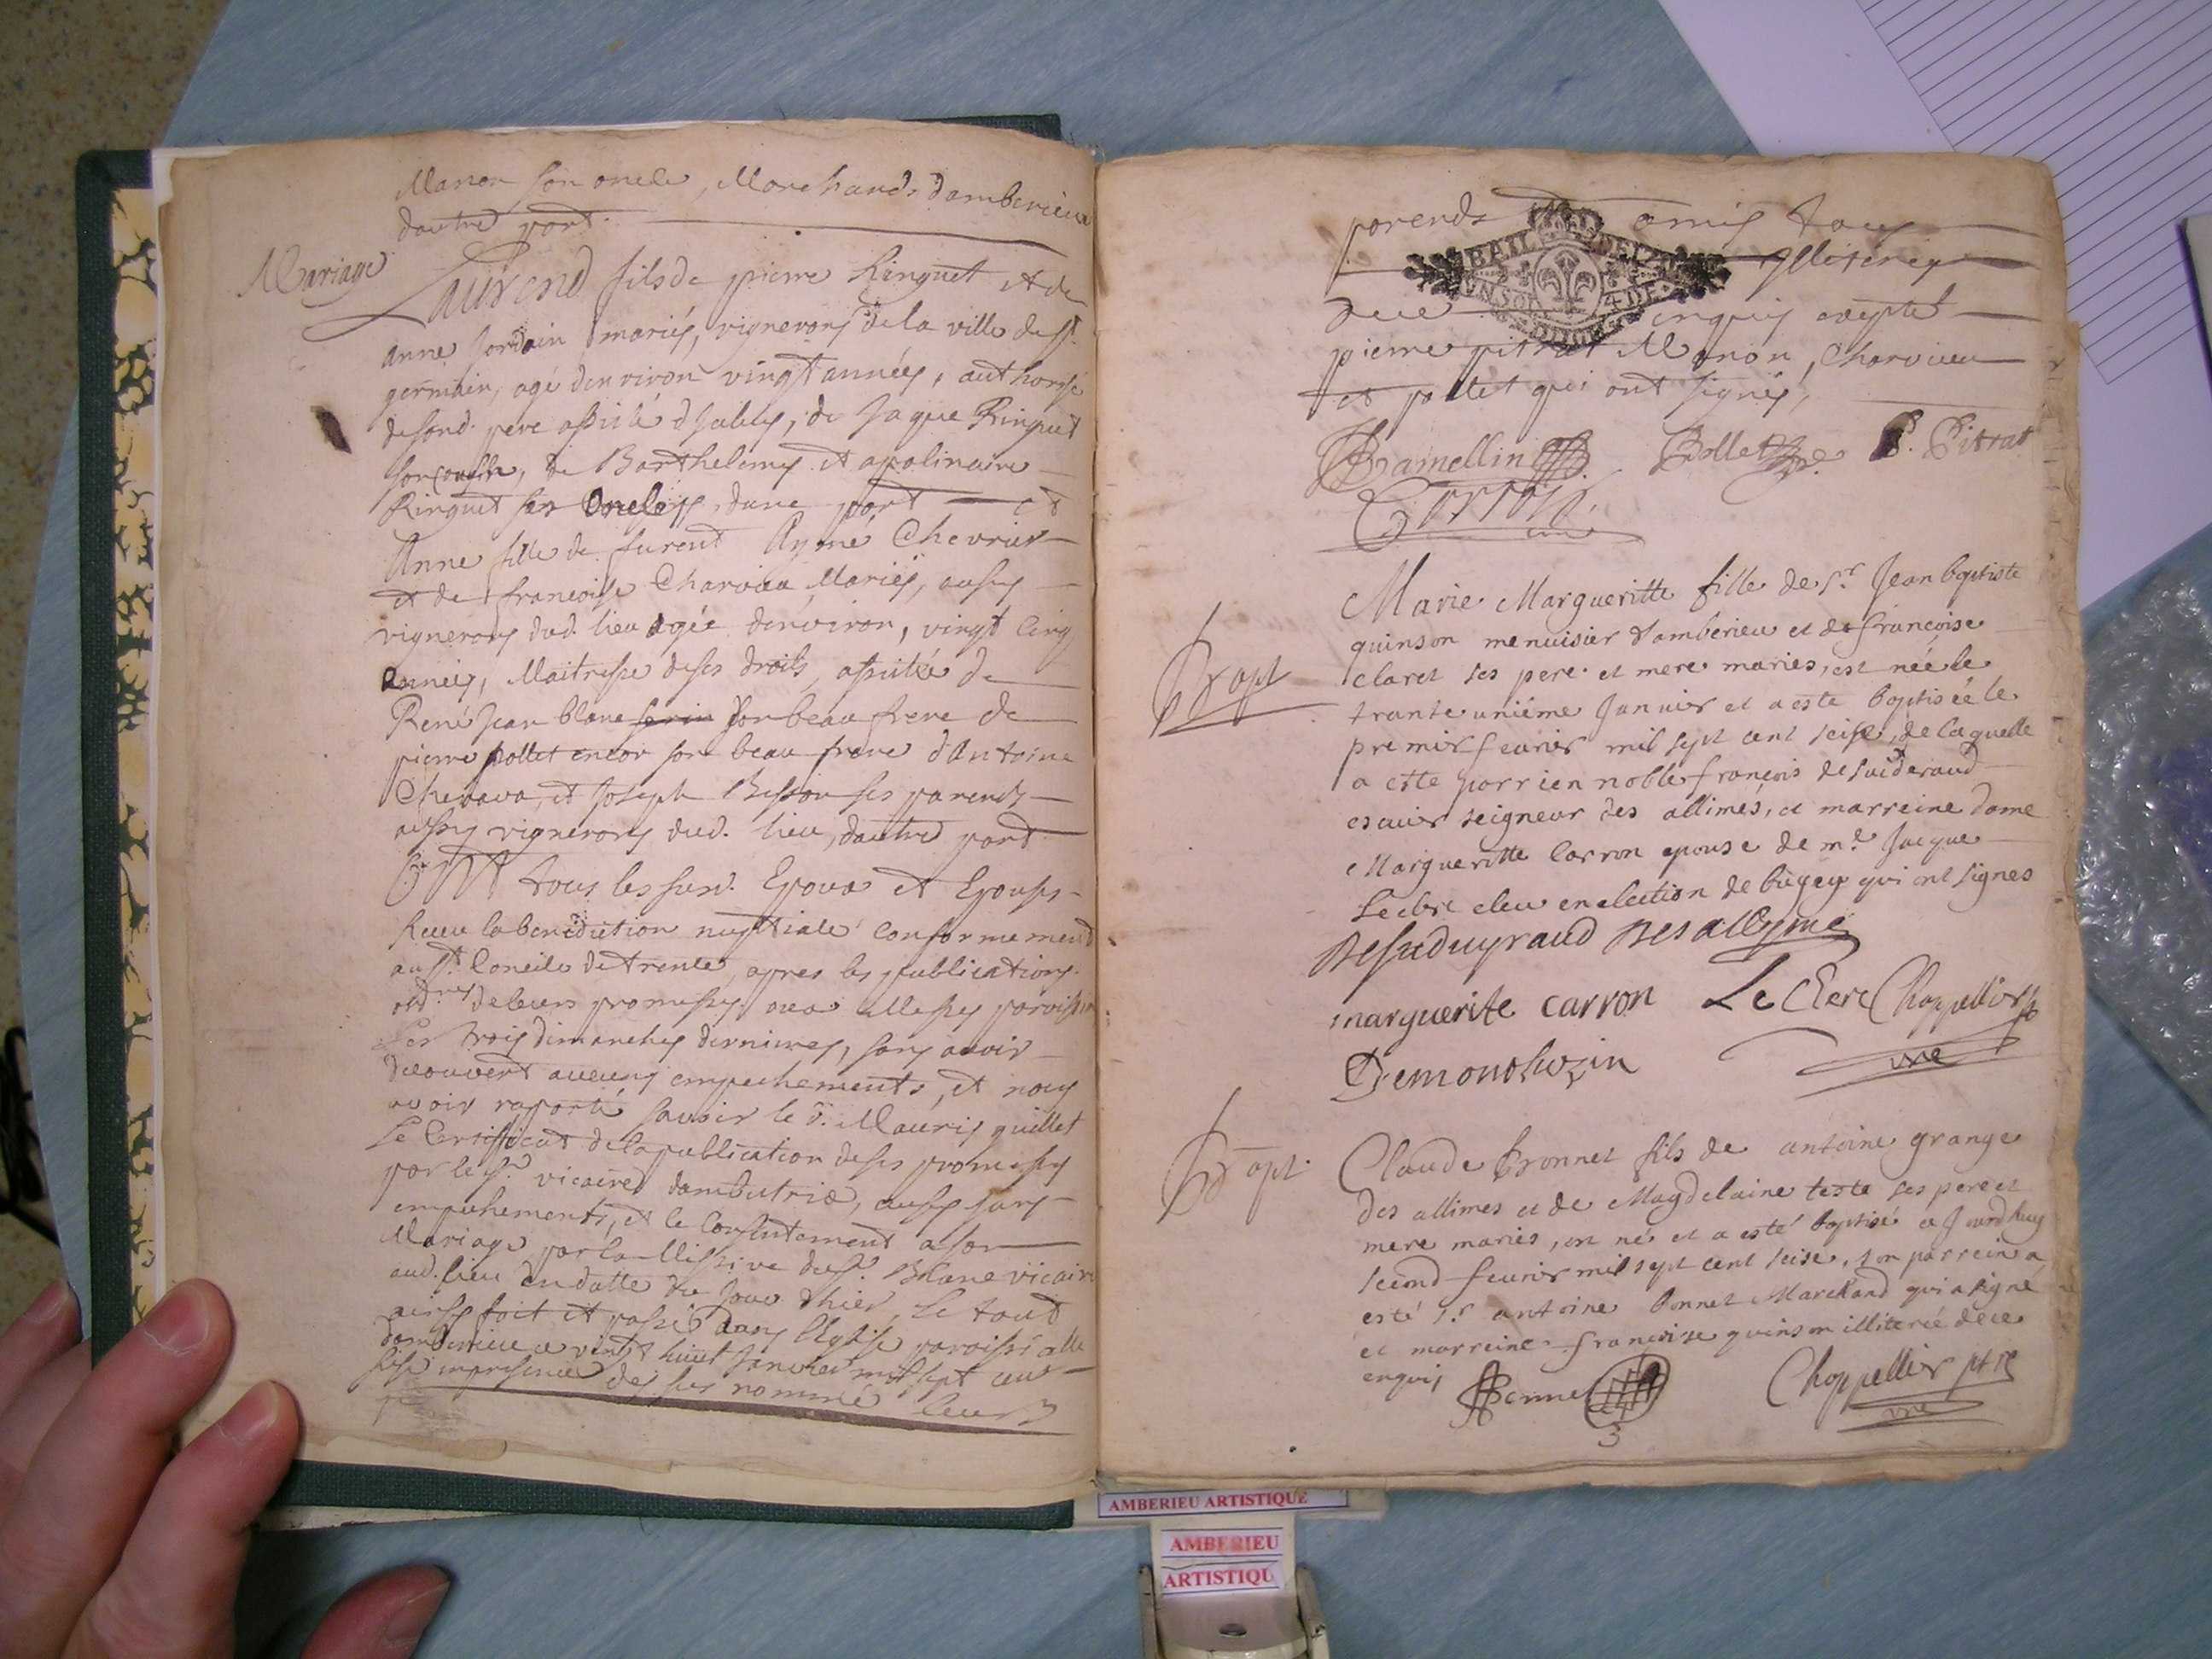 Manon, son oncle, Marchands damberieu
dautre part.
Mariage
Laurend fils de pierre Ringuet et de
anne Jordain mariés, vignerons de la ville de st.
germain, agé denviron vingt années, authorisé
desond. pere assisté d'iceluy, de Jaque Ringuet
son cousin, de Barthelemy et apolinaire
Ringuet ses oncles, dune part et
Anne fille de furent Aymé Chevrier
et de francoise Charvieu Mariés, aussy
vignerons dud. lieu agée denviron, vingt cinq
années, Maitresse de ses droits, assistée de
René Jean blanc son beau frere de
pierre pollet encor son beau frere d'Antoine
Chenava, et Joseph Besson ses parends
aussy vignerons dud. lieu, dautre part
Ont tous les susd. Epoux et Epouses
Receu la benediction nuptiale conformement
au st. Concile de trente, apres les publications
ordres de leurs promesses aux Messes paroissi
les trois dimanches dernieres, sans avoir
decouvert aucuns empechements, et nous
avoir raporté savoir le d. Mauris quillet
le Certificat de la publication de ses promesses
par le sr. vicaire dambutrix, aussy sans
empechements, et le Consentement a son
Mariage par la Missive dusr. Blanc vicaire
aud. lieu en datte du Jour dhier, le tout
ainsy fait et passé dans l'Eglise paroissialle
damberieu ce vingt huict Janvier mil sept cent
seise en presence des sus nommé leurs
parends amis tous
BAIL DE
UN SOL 4 DE
Illiterés
de ce enquis excepté
pierre pitrat Manon, Charvieu
et pollet qui ont signés,
Bamellin Pollet P. Pitrat
Bapt
Marie Margueritte fille de sr. Jean baptiste
quinson menuisier d'ambérieu et de francoise
claret ses pere et mere mariés, est née le
trante unième Janvier et a esté baptisée le
premier feurier mil sept cent seise, de laquelle
a esté parrien noble francois de suideraud
escuier seigneur des allimes, et marreine dame
Margueritte Carron epouse de mr. Jacque
Leclerc eleu en election de bugey qui ont signés
Desuduyraud Des allyme
marguerite carron Le Clerc Chappellier
Demonoluzin vre
Bapt.
Claude bonnet fils de antoine grange
des allimes et de Magdelaine teste ses pere et
mere mariés, est né et a esté baptisé ce Jourdhuy
second feurier mil sept cent seise, son parrein a
esté sr. antoine bonnet Marchand qui a signé
et marreine francoise quinson illiterée de ce
enquis
Bonnet Chappellier ptre
vre
3
AMBERIEU ARTISTIQUE
AMBERIEU
ARTISTIQU